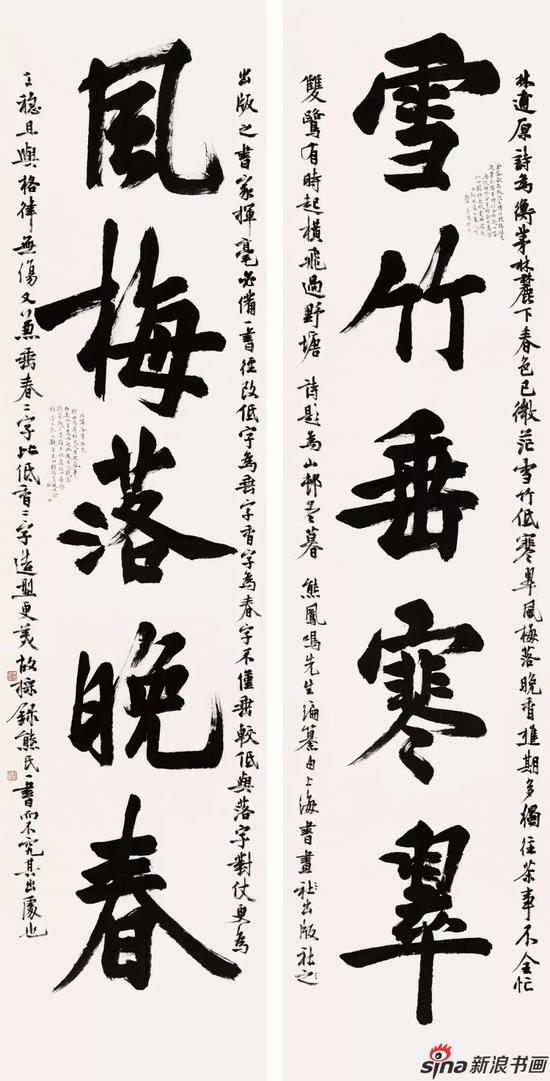 林逋原詩為衡茅林麓下春色已微茫雪竹低寒翠風梅落晚香樵期多獨往茶事不全忙
雪竹垂寒翠
雙鷺有時起橫飛過野塘 詩題為山邨冬暮 熊鳳鳴先生編纂由上海書畫社出版社之
出版之書家揮毫必備一書徑改低字為垂字香字為春字不僅垂較低與落字對仗更為
風梅落晚春
工穩且與格律無傷又兼垂春二字比低香二字造型更美故採錄熊氏一書而不究其出處也
sina新浪书画